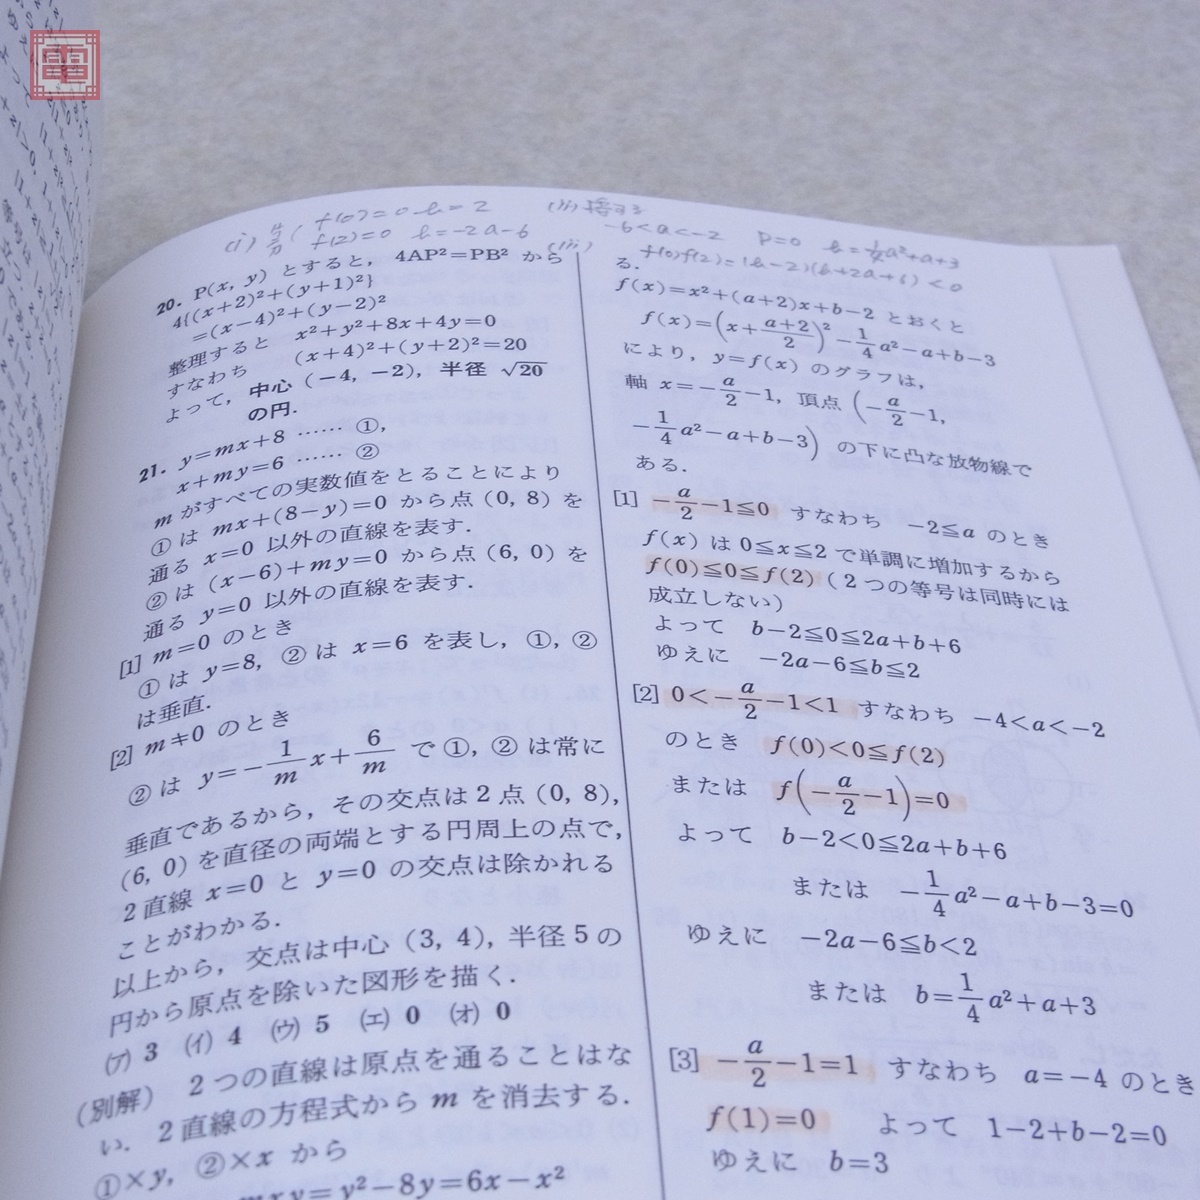 電
(i) f(0)=0 b=2
f(2)=0 b=-2a-6
(ii) 接する
-6<a<-2 D=0 b=¼a²+a+3
(iii) f(0)f(2)=(b-2)(b+2a+6)<0
20. P(x, y) とすると, 4AP²=PB² から
4{(x+2)²+(y+1)²}
=(x-4)²+(y-2)²
整理すると x²+y²+8x+4y=0
すなわち (x+4)²+(y+2)²=20
よって, 中心 (-4, -2), 半径 √20
の円.
21. y=mx+8 …… ①,
x+my=6 …… ②
m がすべての実数値をとることにより
① は mx+(8-y)=0 から点 (0, 8) を
通る x=0 以外の直線を表す.
② は (x-6)+my=0 から点 (6, 0) を
通る y=0 以外の直線を表す.
[1] m=0 のとき
① は y=8, ② は x=6 を表し, ①, ②
は垂直.
[2] m≠0 のとき
② は y=-1/m x+6/m で ①, ② は常に
垂直であるから, その交点は 2 点 (0, 8),
(6, 0) を直径の両端とする円周上の点で,
2 直線 x=0 と y=0 の交点は除かれる
ことがわかる.
以上から, 交点は中心 (3, 4), 半径 5 の
円から原点を除いた図形を描く.
(ア) 3 (イ) 4 (ウ) 5 (エ) 0 (オ) 0
(別解) 2 つの直線は原点を通ることはな
い. 2 直線の方程式から m を消去する.
①×y, ②×x から
mxy=y²-8y=6x-x²
る.
f(x)=x²+(a+2)x+b-2 とおくと
f(x)=(x+(a+2)/2)²-1/4 a²-a+b-3
により, y=f(x) のグラフは,
軸 x=-a/2-1, 頂点 (-a/2-1,
-1/4 a²-a+b-3) の下に凸な放物線で
ある.
[1] -a/2-1≦0 すなわち -2≦a のとき
f(x) は 0≦x≦2 で単調に増加するから
f(0)≦0≦f(2) (2 つの等号は同時には
成立しない)
よって b-2≦0≦2a+b+6
ゆえに -2a-6≦b≦2
[2] 0<-a/2-1<1 すなわち -4<a<-2
のとき f(0)<0≦f(2)
または f(-a/2-1)=0
よって b-2<0≦2a+b+6
または -1/4 a²-a+b-3=0
ゆえに -2a-6≦b<2
または b=1/4 a²+a+3
[3] -a/2-1=1 すなわち a=-4 のとき
f(1)=0 よって 1-2+b-2=0
ゆえに b=3